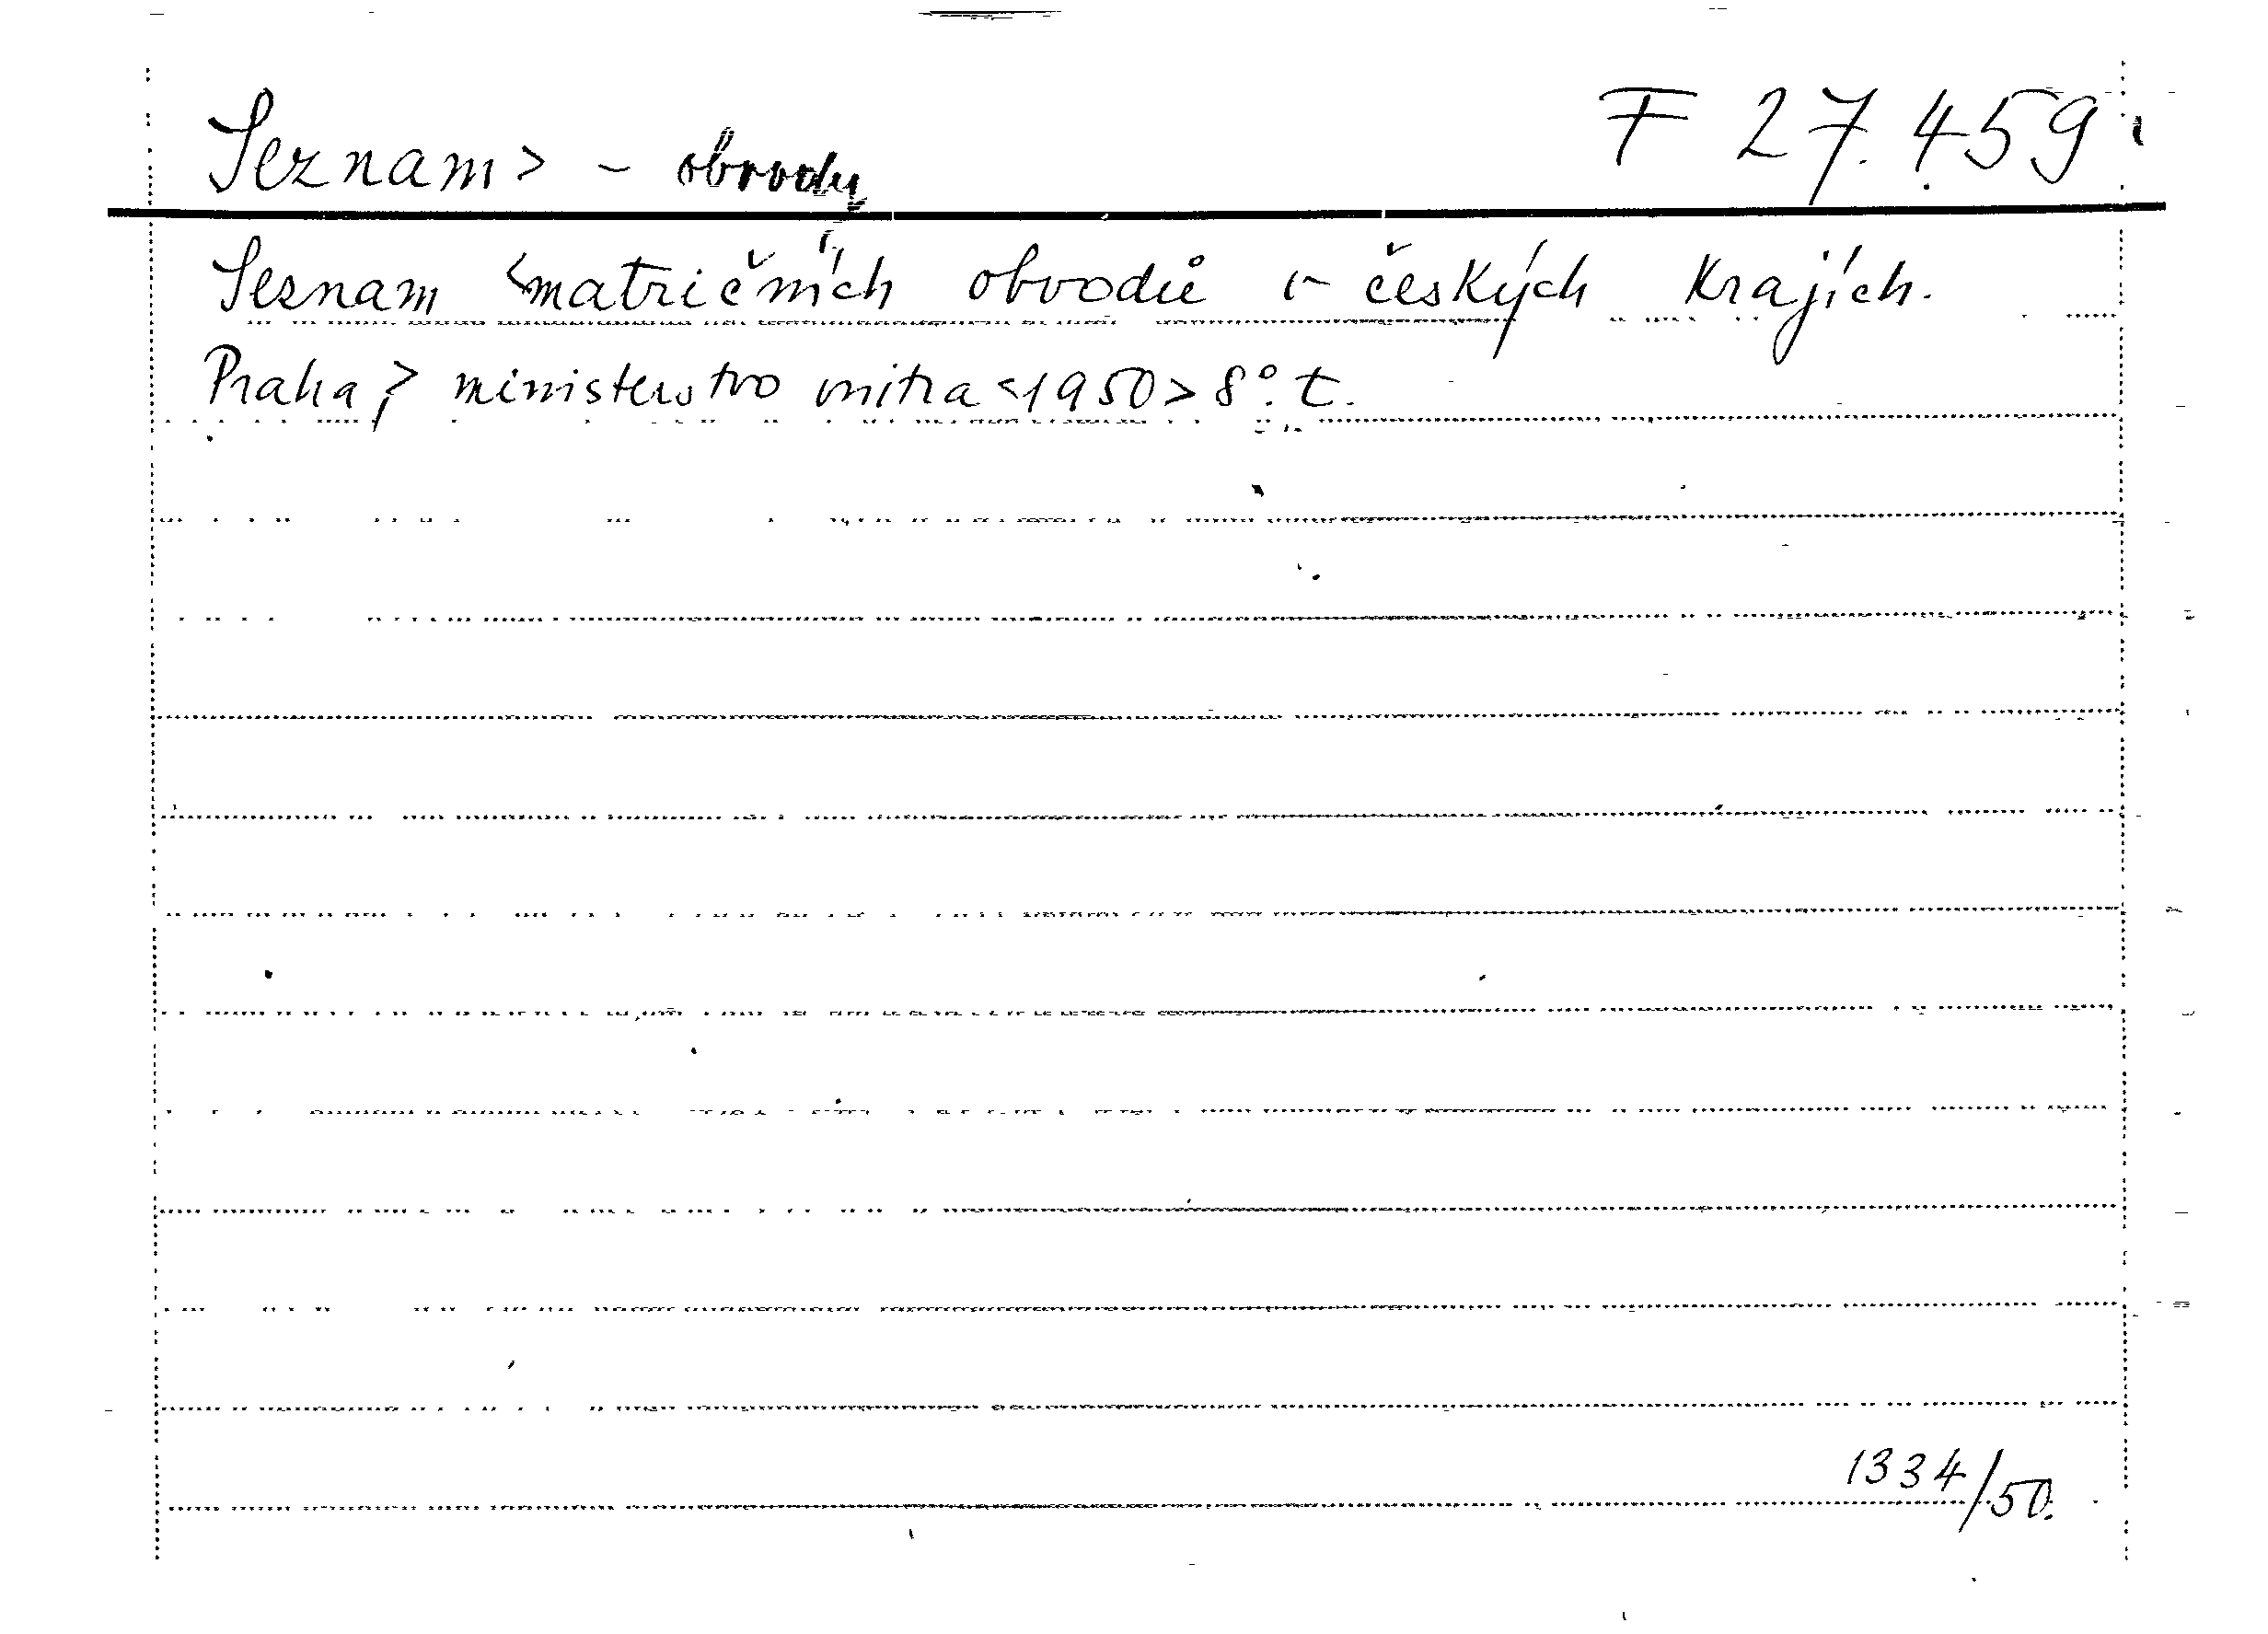 Seznam> - obvody F 27.459
Seznam <matričních obvodů v českých krajích.
Praha,> ministerstvo vnitra <1950> 8°. t.
1334/50.